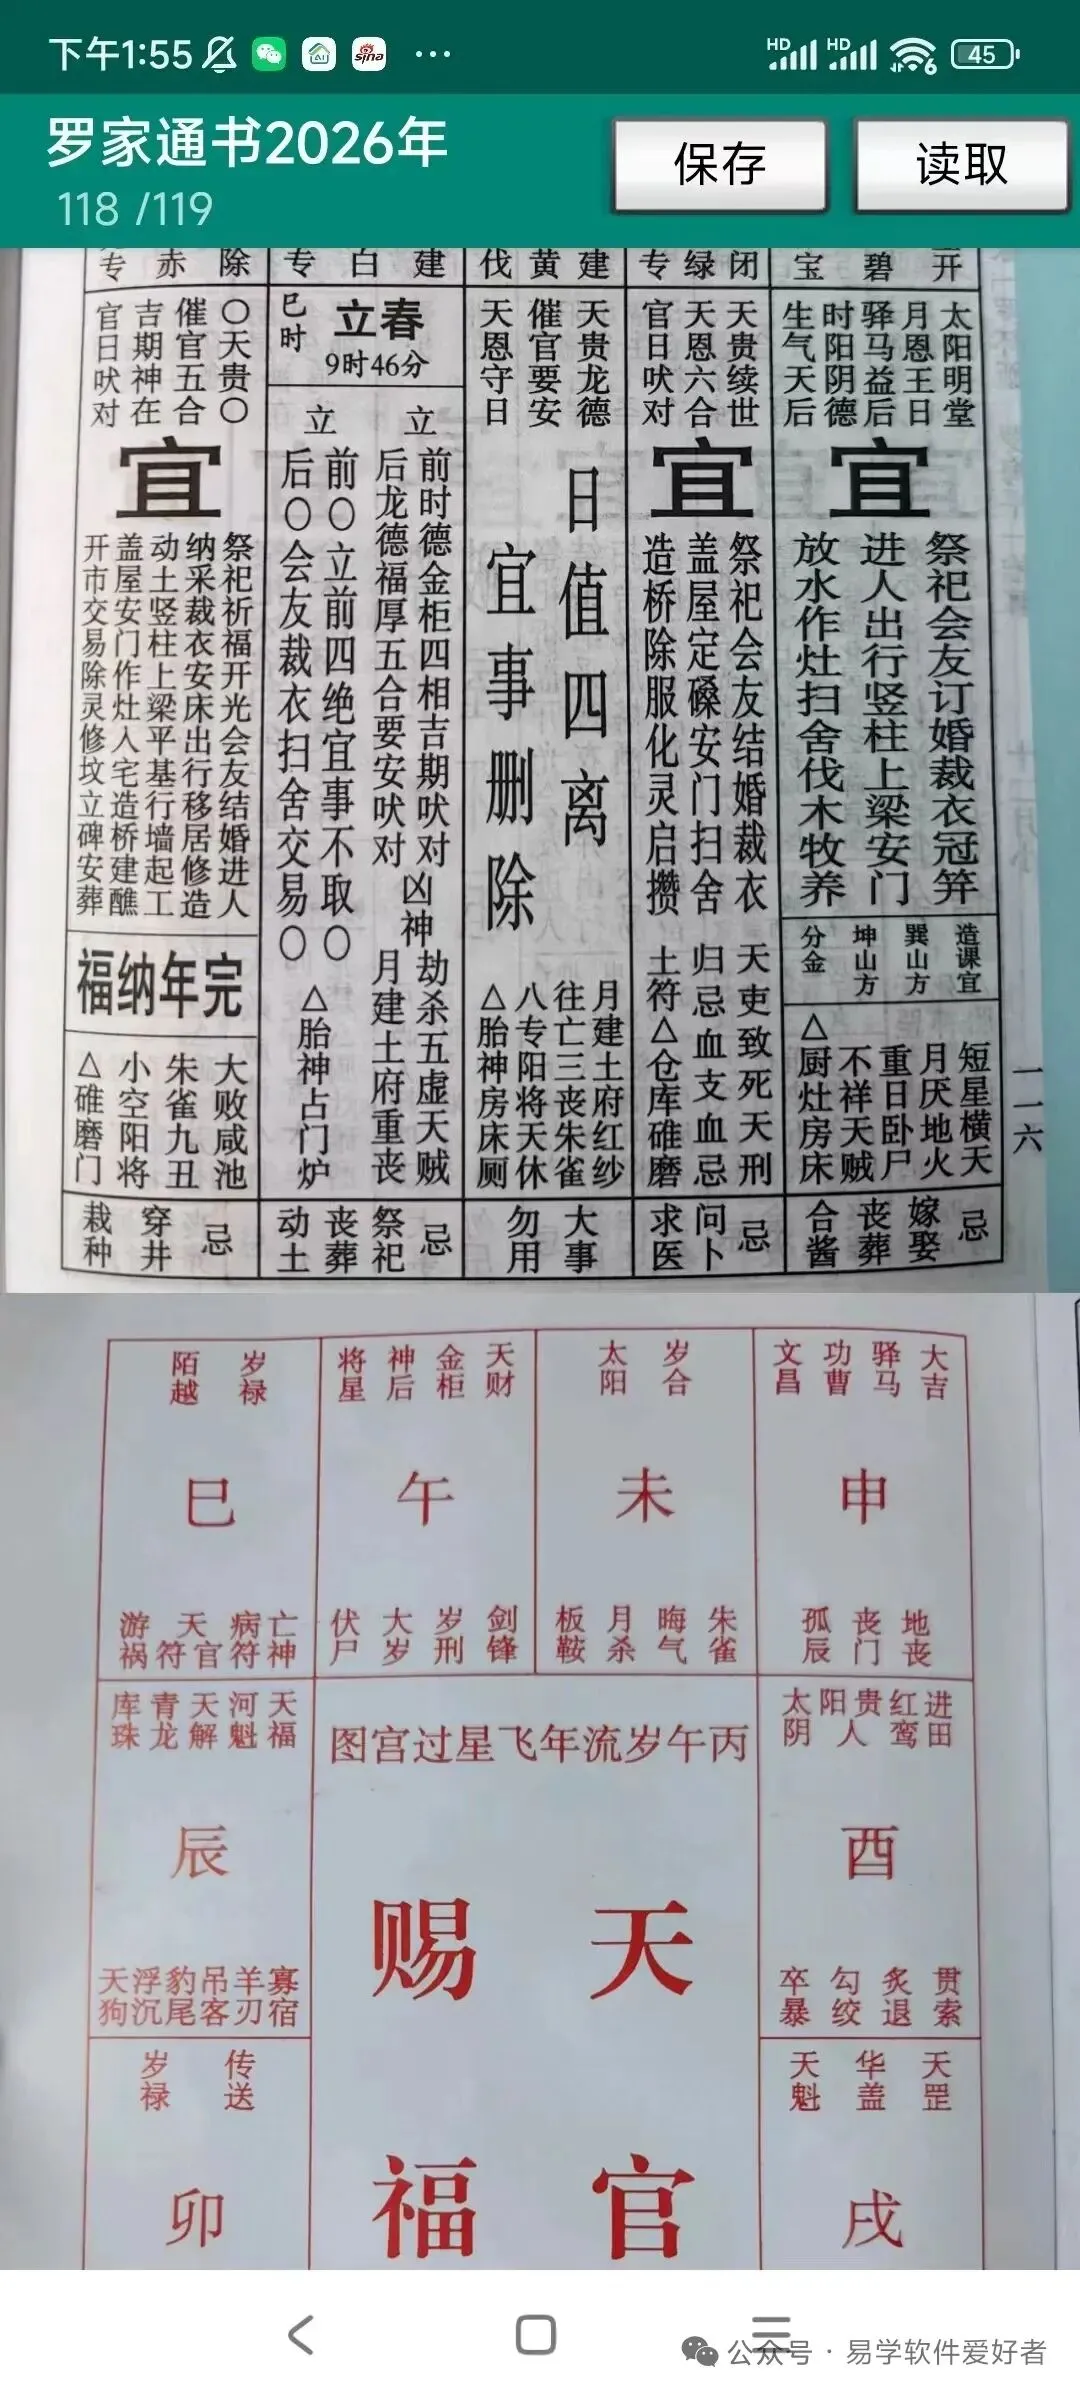 下午1:55
HD HD 6 45
罗家通书2026年
118 /119
保存
读取
开
碧
宝
太阳明堂
月恩王日
驿马益后
时阳阴德
生气天后
宜
祭祀会友订婚裁衣冠笄
进人出行竖柱上梁安门
放水作灶扫舍伐木牧养
造课宜
巽山方
坤山方
分金
短星横天
月厌地火
重日卧尸
不祥天贼
△厨灶房床
忌
嫁娶
丧葬
合酱
闭
绿
专
天贵续世
天恩六合
官日吠对
宜
祭祀会友结婚裁衣
盖屋定磉安门扫舍
造桥除服化灵启攒
天吏致死天刑
归忌血支血忌
土符△仓库碓磨
忌
问卜
求医
建
黄
伐
天贵龙德
催官要安
天恩守日
日值四离
宜事删除
月建土府红纱
往亡三丧朱雀
八专阳将天休
△胎神房床厕
大事
勿用
建
白
专
立春
9时46分
巳时
立前时德金柜四相吉期吠对
立后龙德福厚五合要安吠对
前〇立前四绝宜事不取〇
后〇会友裁衣扫舍交易〇
凶神
劫杀五虚天贼
月建土府重丧
△胎神占门炉
忌
祭祀
丧葬
动土
除
赤
专
〇天贵〇
催官五合
吉期神在
官日吠对
宜
祭祀祈福开光会友结婚进人
纳采裁衣安床出行移居修造
动土竖柱上梁平基行墙起工
盖屋安门作灶入宅造桥建醮
开市交易除灵修坟立碑安葬
福纳年完
大败咸池
朱雀九丑
小空阳将
△碓磨门
忌
穿井
栽种
一一六
岁禄
陌越
巳
亡神
病符
天官符
游祸
天财
金柜
神后
将星
午
剑锋
岁刑
大岁
伏尸
岁合
太阳
未
朱雀
晦气
月杀
板鞍
大吉
驿马
功曹
文昌
申
地丧
丧门
孤辰
天福
河魁
天解
青龙
库珠
辰
寡宿
羊刃
吊客
豹尾
浮沉
天狗
图宫过星飞年流岁午丙
天官赐福
进田
红鸾
阳贵人
太阴
酉
贯索
炙退
勾绞
卒暴
传送
岁禄
卯
天罡
华盖
天魁
戌
公众号 · 易学软件爱好者